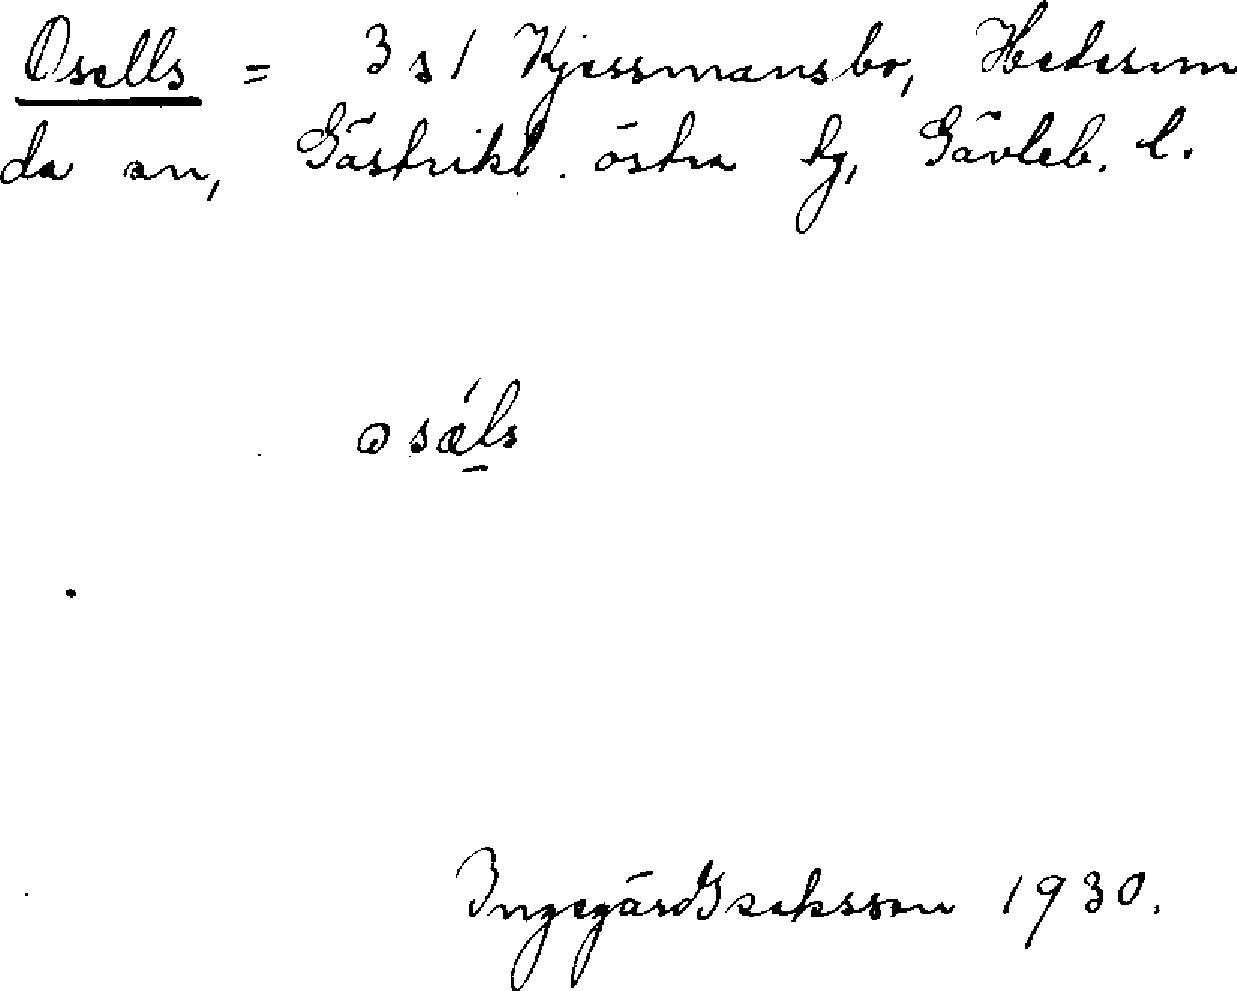 Osells = 3 s 1 Kjessmansbo, Hedesun
da sn, Gästrikl. östra tg, Gävleb. l.
osäls
Ingegärd Isaksson 1930.